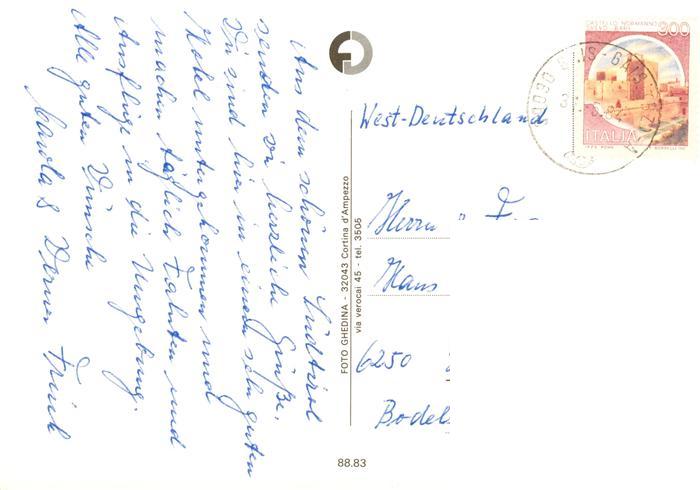 Aus dem schönen Südtirol
senden wir herzliche Grüße.
Wir sind hier in einem sehr guten
Hotel untergekommen und
machen täglich Fahrten und
Ausflüge in die Umgebung.
Alle guten Wünsche
&
FOTO GHEDINA - 32043 Cortina d'Ampezzo
via verocai 45 - tel. 3505
88.83
CASTELLO NORMANNO
300
ITALIA
39030 GAIS - GAIS
West-Deutschland
Herrn
Hans
6250
Bodel